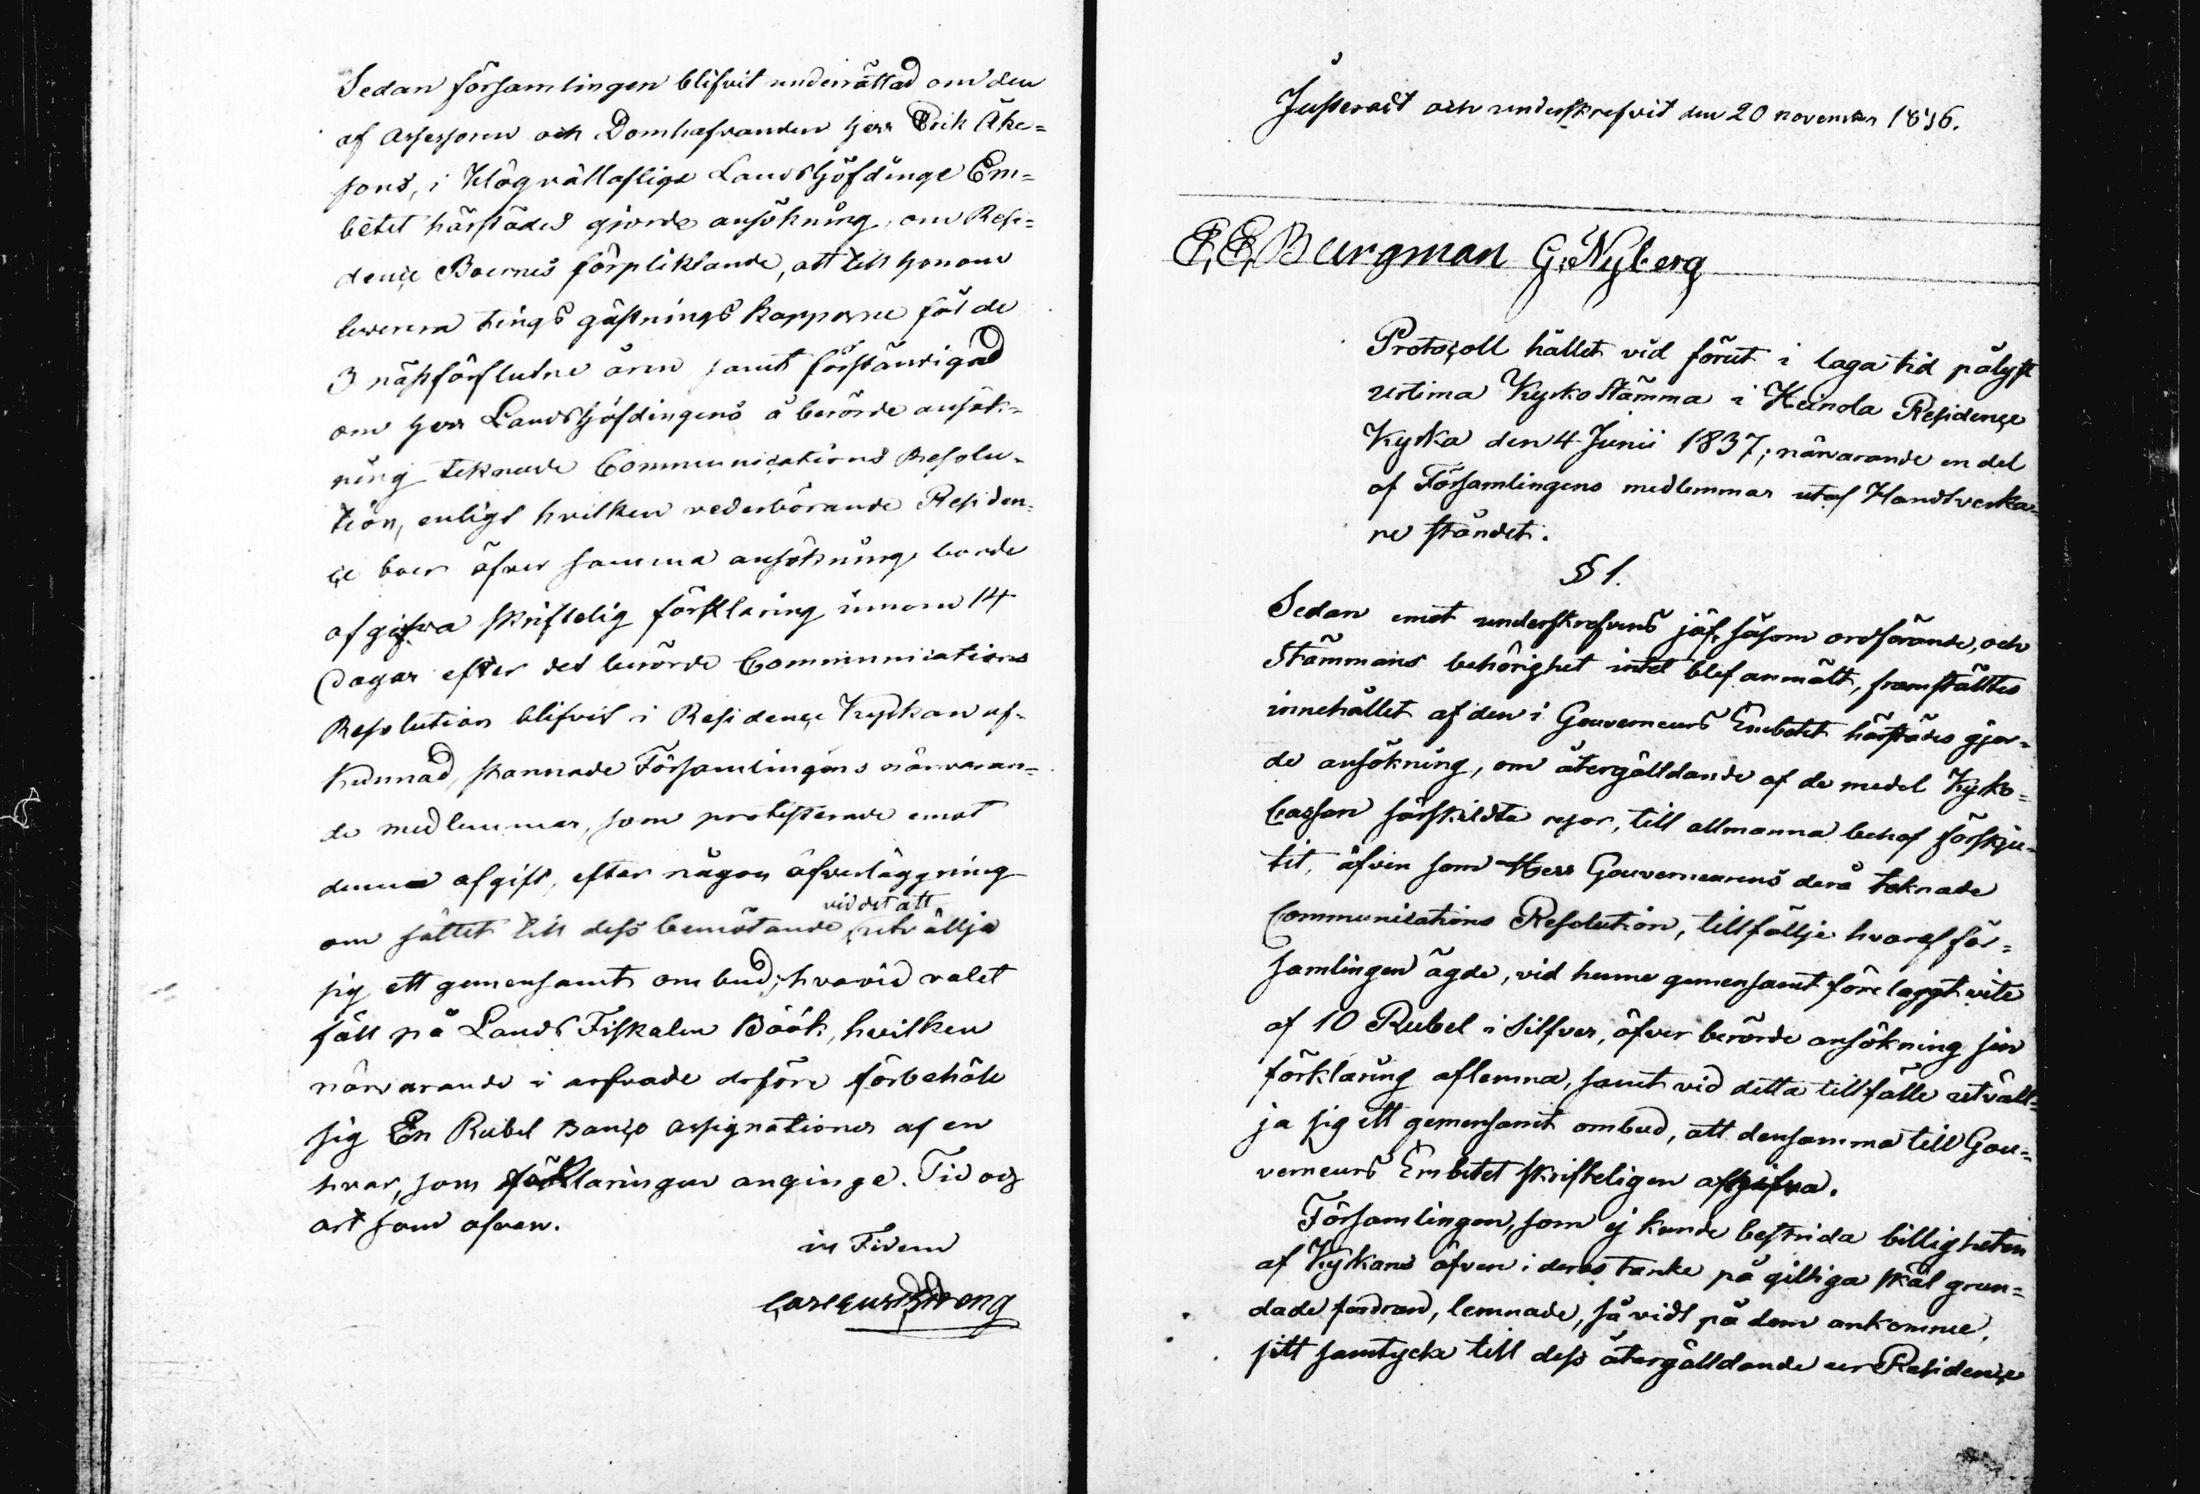 Sedan församlingen blifvit underrättad om den
af Assessoren och Domhafvanden Herr Erik Åke=
sons, i Högvälloflige Landshöfdinge Em=
betet härstädes gjorde ansökning, om Resi=
dençe Boernes förpliktande, att till honom
leverera tings gästnings kapporne för de
3 nästförflutne åren samt förständigad
om Herr Landshöfdingens å berörde ansök=
ning teknade Communications Resolu=
tion, enligt hvilken vederbörande Residen=
çe boer öfver samma ansökning borde
afgifva skriftelig förklaring innom 14
dagar efter det berörde Communications
Resolution blifvit i Residençe Kyrkan af=
kunnad, stannade Församlingens närvaran=
de medlemmar, som protesterade emot
denna afgift, efter någon öfverläggning
vid det att
om sättet till dess bemötande, utvällja
sig ett gemensamt ombud, hvarvid valet
föll på Lands Fiskalen Böök, hvilken
närvarande i arfvode derföre förbehöll
sig En Rubel Banco Assignationer af en
hvar, som förklaringen anginge. Tid och
ort som ofvan.
in Fidem
Justeradt och underskrefvit den 20 november 1836.
E. E. Burgman G. Nyberg
Protoçoll hållet vid förut i laga tid pålyst
urtima Kyrko Stämma i Heinola Residençe
Kyrka den 4 Junii 1837; närvarande en del
af Församlingens medlemmar utaf Handtverka=
re ståndet.
§ 1.
Sedan emot underskrefvens jäf, såsom ordförande, och
Stämmans behörighet intet blef anmält, framställtes
innehållet af den i Gouverneurs Embetet härstädes gjor=
de ansökning, om återgälldande af de medel Kyrko=
Cassan särskildta resor, till allmänna behof förskju=
tit, äfven som Herr Gouverneurens derå teknade
Communications Resolution, tillfölje hvaraf för=
samlingen ägde, vid henne gemensamt förelaggt vite
af 10 Rubel i Silfver, öfver berörde ansökning sin
förklaring aflemna, samt vid detta tillfälle utväll=
ja sig ett gemensamt ombud, att densamma till Gou=
verneurs Embetet skrifteligen afgifva.
Församlingen, som ej kunde bestrida billigheten
af Kyrkans äfven i deras tanke på gilltiga skäl grun=
dade fordran, lemnade, så vidt på dem ankomme,
sitt samtycke till dess återgälldande ur Residençe